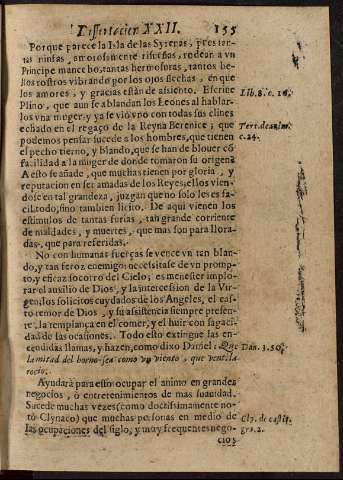 Dissertacion XXII. 155
Porque parece la Isla de las Syrenas, pues tan-
tas ninfas, amorosamente risueñas, rodean a vn
Principe mancebo, tantas hermosuras, tantos be-
llos rostros vibrando por los ojos flechas, en que
los amores, y gracias están de asiento. Escriue
Plinio, que aun se ablandan los Leones al hablar-
los vna muger, y ya se viò vno con todas sus clines
echado en el regaço de la Reyna Berenice; que
podemos pensar sucede a los hombres, que tienen
el pecho tierno, y blando, que se han de blouer cō
facilidad a la muger de donde tomaron su origen?
A esto se añade, que muchas tienen por gloria, y
reputacion en ser amadas de los Reyes, ellos vien-
dose en tal grandeza, juzgan que no solo les es fa-
cil todo, sino tambien licito. De aqui vienen los
estimulos de tantas furias, tan grande corriente
de maldades, y muertes, que mas son para llora-
das, que para referidas.
No con humanas fuerças se vence vn tan blan-
do, y tan feroz enemigo: necesitase de vn promp-
to, y eficaz socorro del Cielo; es menester implo-
rar el ausilio de Dios, y la intercession de la Vir-
gen, los solicitos cuydados de los Angeles, el cas-
to temor de Dios, y su assistencia siempre presen-
te, la templança en el comer, y el huir con sagaci-
dad de las ocasiones. Todo esto extingue las en-
cendidas llamas, y hazen, como dixo Daniel: Que
la mitad del horno sea como vn viento, que vent. la
rocio.
Ayudarà para esto ocupar el animo en grandes
negocios, ò entretenimientos de mas suauidad.
Sucede muchas vezes (como doctissimamente no-
tò Clynaco) que muchas personas en medio de
las ocupaciones del siglo, y muy frequentes nego-
cios
Lib. 8. c. 16.
c. 24.
Dan. 3. 50.
Cly. de castit.
gra. 2.